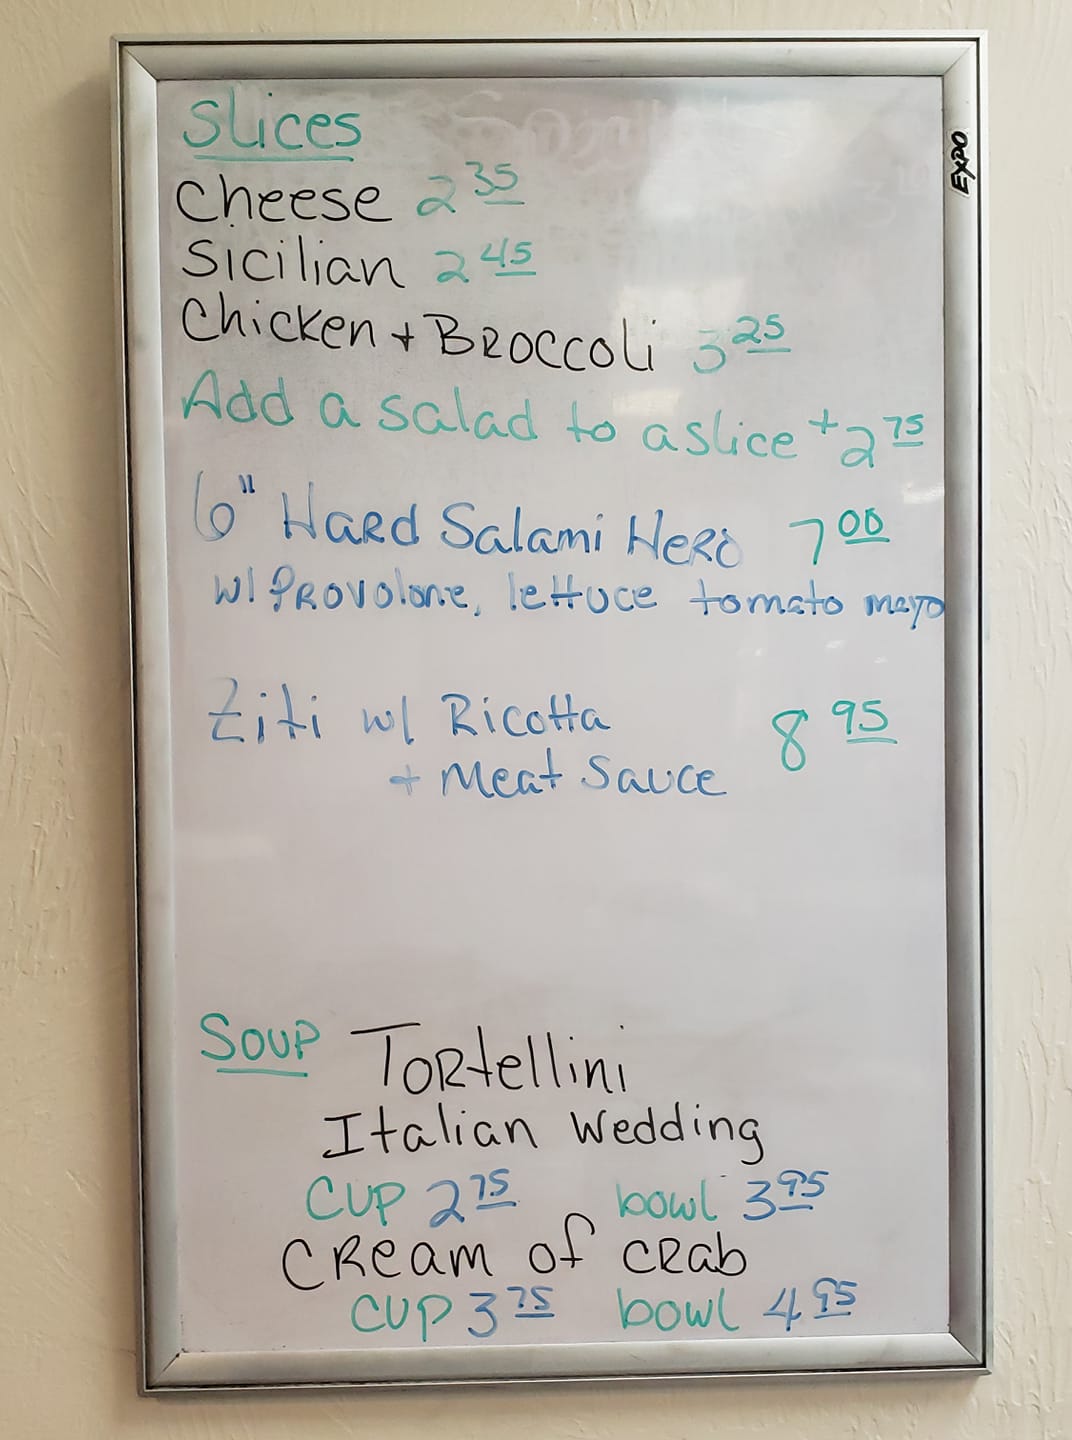 Slices
Cheese 2 35
Sicilian 2 45
Chicken + Broccoli 3 25
Add a salad to a slice + 2 75
6" Hard Salami Hero 7 00
w/ Provolone, lettuce tomato mayo
Ziti w/ Ricotta 8 95
+ Meat Sauce
Soup Tortellini
Italian Wedding
Cup 2 75 bowl 3 95
Cream of Crab
Cup 3 75 bowl 4 95
EXPO